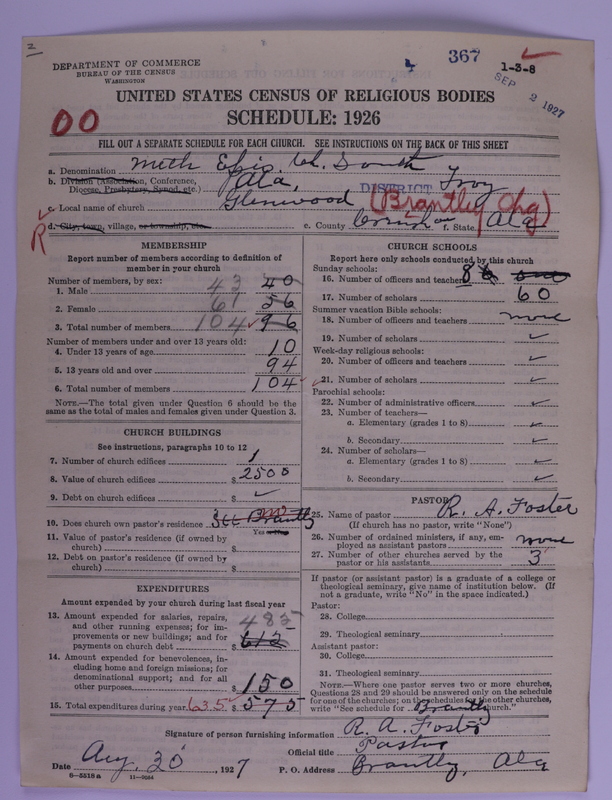 2
367
1-3-8
SEP 2 1927
DEPARTMENT OF COMMERCE
BUREAU OF THE CENSUS
WASHINGTON
UNITED STATES CENSUS OF RELIGIOUS BODIES
SCHEDULE: 1926
00
FILL OUT A SEPARATE SCHEDULE FOR EACH CHURCH. SEE INSTRUCTIONS ON THE BACK OF THIS SHEET
a. Denomination Meth Epis Ch. South
b. Division (Association, Conference, Diocese, Presbytery, Synod, etc.) Ala, DISTRICT Troy
c. Local name of church Glenwood (Brantley Chg)
d. City, town, village, or township, etc. e. County f. State Ala
R
MEMBERSHIP
Report number of members according to definition of
member in your church
Number of members, by sex:
1. Male 43 40
2. Female 61 56
3. Total number of members 104 96
Number of members under and over 13 years old:
4. Under 13 years of age 10
5. 13 years old and over 94
6. Total number of members 104
NOTE.—The total given under Question 6 should be the
same as the total of males and females given under Question 3.
CHURCH BUILDINGS
See instructions, paragraphs 10 to 12
7. Number of church edifices 1
8. Value of church edifices $2500
9. Debt on church edifices $ ✓
10. Does church own pastor's residence See Brantly no
Yes or No
11. Value of pastor's residence (if owned by
church) $
12. Debt on pastor's residence (if owned by
church) $
EXPENDITURES
Amount expended by your church during last fiscal year
13. Amount expended for salaries, repairs,
and other running expenses; for im-
provements or new buildings; and for
payments on church debt $ 485 612
14. Amount expended for benevolences, in-
cluding home and foreign missions; for
denominational support; and for all
other purposes $ 150
15. Total expenditures during year 635 $ 575
CHURCH SCHOOLS
Report here only schools conducted by this church
Sunday schools:
16. Number of officers and teachers 8
17. Number of scholars 60
Summer vacation Bible schools:
18. Number of officers and teachers none
19. Number of scholars ✓
Week-day religious schools:
20. Number of officers and teachers ✓
21. Number of scholars ✓
Parochial schools:
22. Number of administrative officers ✓
23. Number of teachers—
a. Elementary (grades 1 to 8) ✓
b. Secondary ✓
24. Number of scholars—
a. Elementary (grades 1 to 8) ✓
b. Secondary ✓
PASTOR
25. Name of pastor R. A. Foster
(If church has no pastor, write "None")
26. Number of ordained ministers, if any, em-
ployed as assistant pastors none
27. Number of other churches served by the
pastor or his assistants 3
If pastor (or assistant pastor) is a graduate of a college or
theological seminary, give name of institution below. (If
not a graduate, write "No" in the space indicated.)
Pastor:
28. College
29. Theological seminary
Assistant pastor:
30. College
31. Theological seminary
NOTE.—Where one pastor serves two or more churches,
Questions 28 and 29 should be answered only on the schedule
for one of the churches; on the schedules for the other churches
write "See schedule for Brantly church."
Signature of person furnishing information R. A. Foster
Official title Pastor
Date Aug, 30, 1927 P. O. Address Brantly, Ala
6—5518a 11—9084